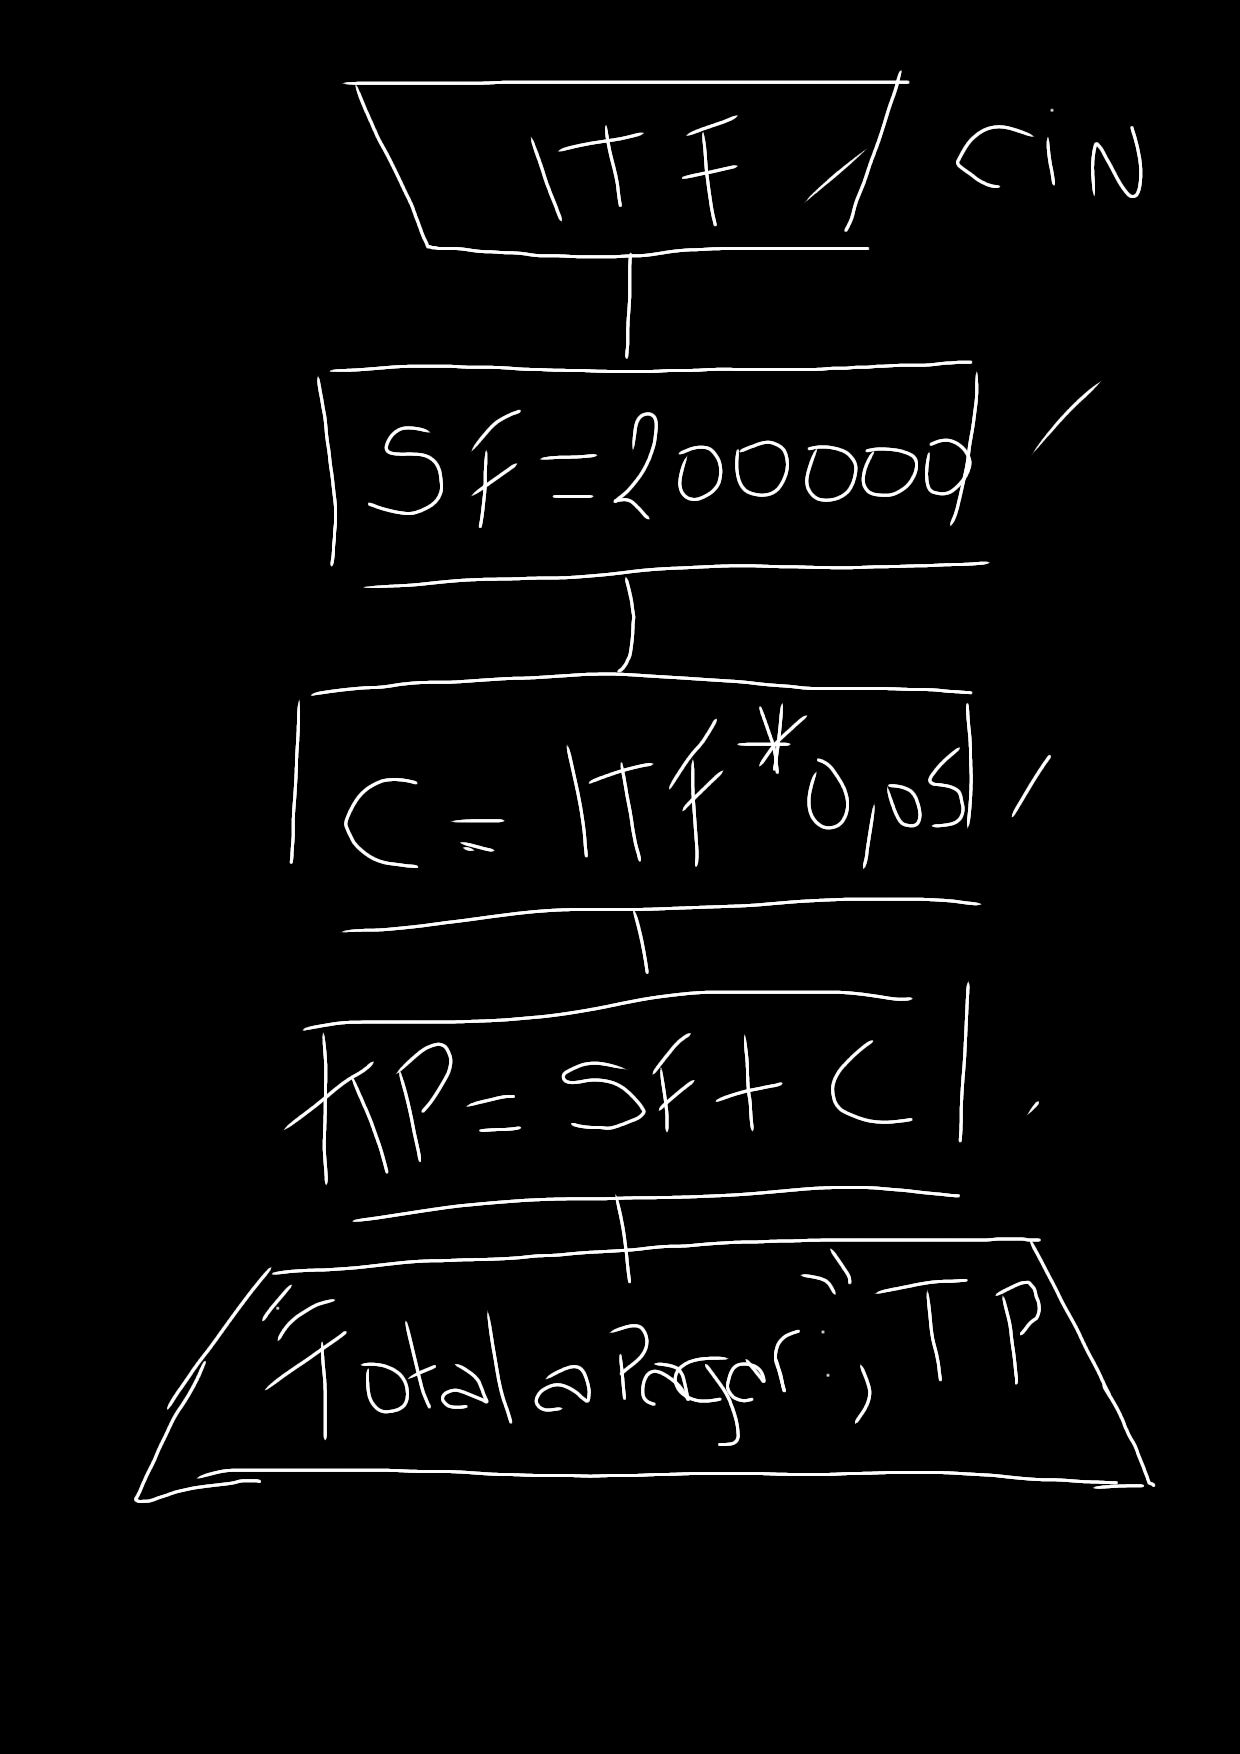 ITF cin
SF=200000
C = ITF*0,05
TP= SF+C
"Total a Pagar:", TP